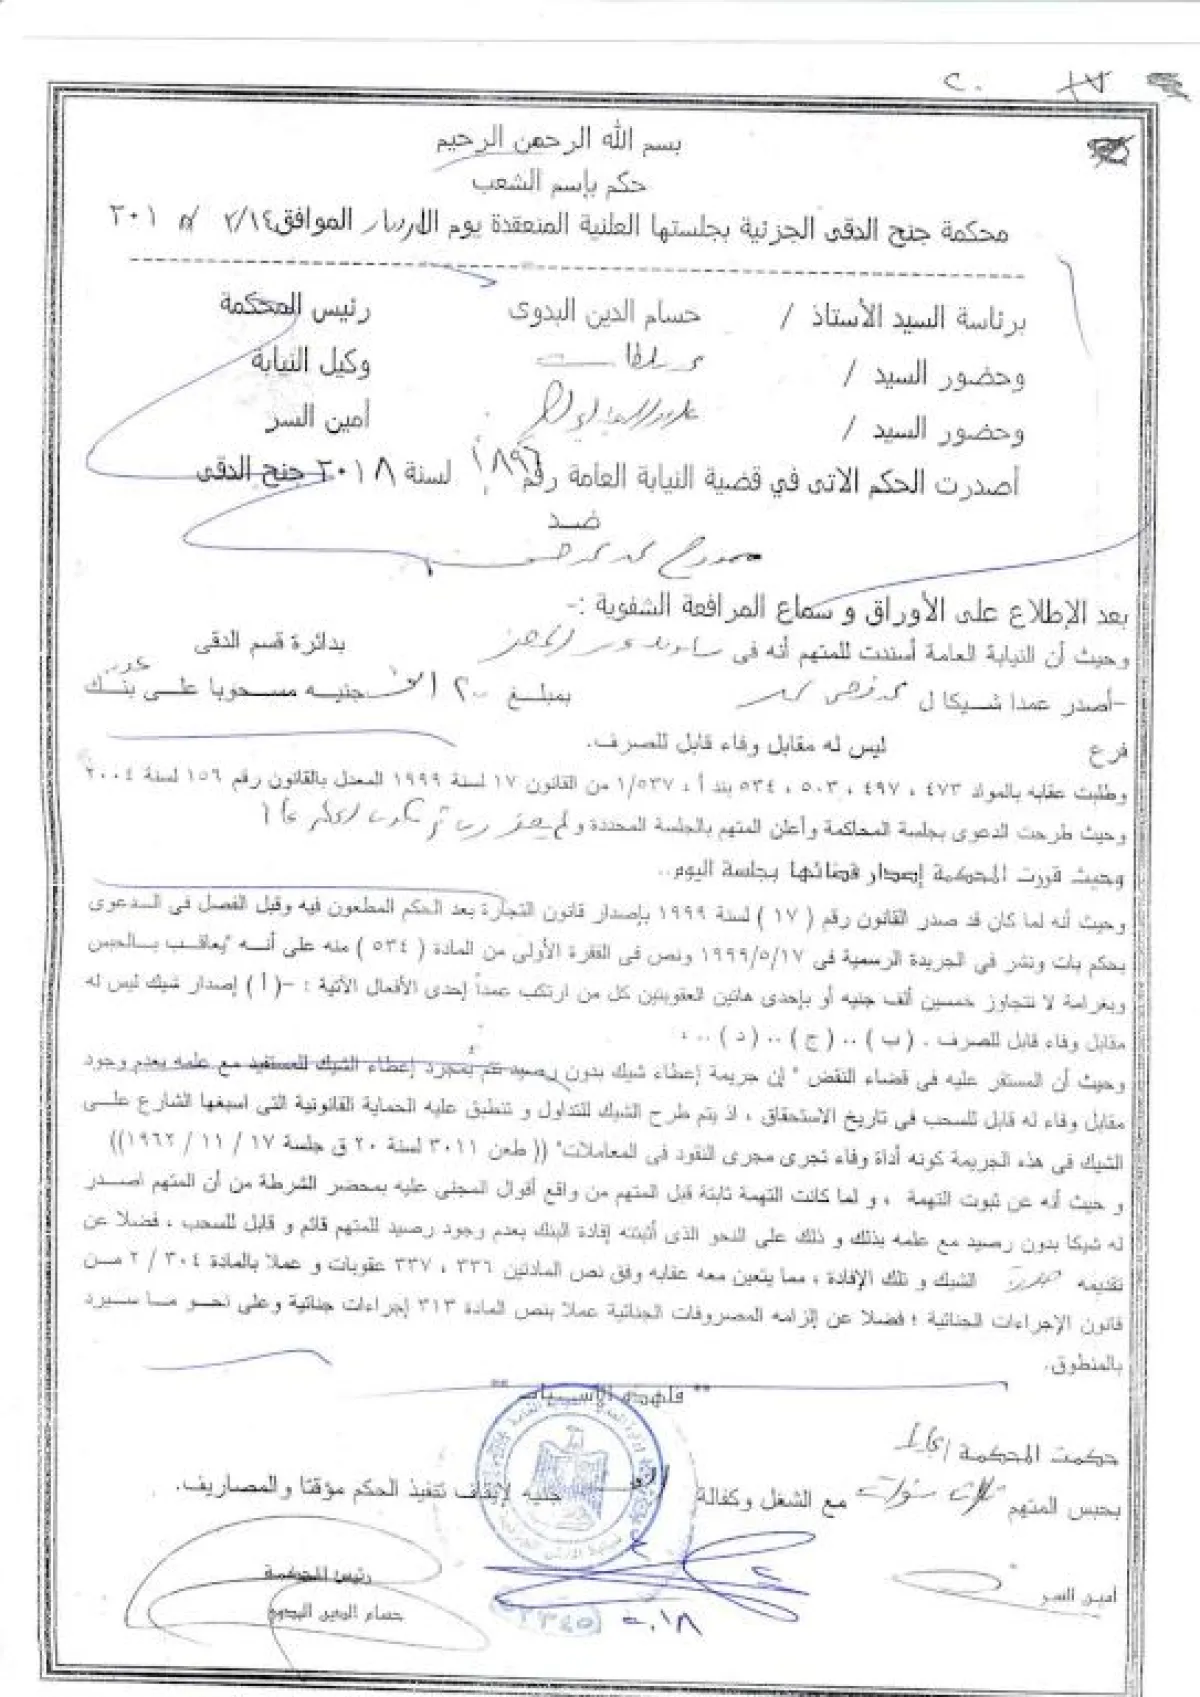 بسم الله الرحمن الرحيم
حكم بإسم الشعب
محكمة جنح الدقى الجزئية بجلستها العلنية المنعقدة يوم الموافق ٢/١٤ ٢٠١
برئاسة السيد الأستاذ / حسام الدين البدوى رئيس المحكمة
وحضور السيد / وكيل النيابة
وحضور السيد / أمين السر
أصدرت الحكم الاتى في قضية النيابة العامة رقم لسنة ٢٠١٨ جنح الدقى
ضد
بعد الإطلاع على الأوراق و سماع المرافعة الشفوية :-
وحيث أن النيابة العامة أسندت للمتهم أنه فى بدائرة قسم الدقى
-أصدر عمدا شيكا ل بمبلغ جنيه مسحوبا على بنك
فرع ليس له مقابل وفاء قابل للصرف.
وطلبت عقابه بالمواد ٤٧٣ ، ٤٩٧ ، ٥٠٣ ، ٥٣٤ بند أ ، ١/٥٣٧ من القانون ١٧ لسنة ١٩٩٩ المعدل بالقانون رقم ١٥٦ لسنة ٢٠٠٤
وحيث طرحت الدعوى بجلسة المحاكمة وأعلن المتهم بالجلسة المحددة و
وحيث قررت المحكمة إصدار قضائها بجلسة اليوم..
وحيث أنه لما كان قد صدر القانون رقم ( ١٧ ) لسنة ١٩٩٩ بإصدار قانون التجارة بعد الحكم المطعون فيه وقبل الفصل فى الدعوى
بحكم بات ونشر في الجريدة الرسمية فى ١٩٩٩/٥/١٧ ونص فى الفقرة الأولى من المادة ( ٥٣٤ ) منه على أنه "يعاقب بالحبس
وبغرامة لا تتجاوز خمسين ألف جنيه أو بإحدى هاتين العقوبتين كل من ارتكب عمداً إحدى الأفعال الآتية : -( أ ) إصدار شيك ليس له
مقابل وفاء قابل للصرف . ( ب ) .. ( ج ) .. ( د ) .. ،
وحيث أن المستقر عليه فى قضاء النقض " إن جريمة إعطاء شيك بدون رصيد تتم بمجرد إعطاء الشيك للمستفيد مع علمه بعدم وجود
مقابل وفاء له قابل للسحب في تاريخ الاستحقاق ، اذ يتم طرح الشيك للتداول و تنطبق عليه الحماية القانونية التى اسبغها الشارع على
الشيك فى هذه الجريمة كونه أداة وفاء تجرى مجرى النقود فى المعاملات" (( طعن ٣٠١١ لسنة ٢٠ ق جلسة ١٧ / ١١ / ١٩٦٢))
و حيث أنه عن ثبوت التهمة ، و لما كانت التهمة ثابتة قبل المتهم من واقع أقوال المجنى عليه بمحضر الشرطة من أن المتهم اصدر
له شيكا بدون رصيد مع علمه بذلك و ذلك على النحو الذى أثبتته إفادة البنك بعدم وجود رصيد للمتهم قائم و قابل للسحب ، فضلا عن
تقديمه الشيك و تلك الإفادة ، مما يتعين معه عقابه وفق نص المادتين ٣٣٦ ، ٣٣٧ عقوبات و عملا بالمادة ٣٠٤ / ٢ من
قانون الإجراءات الجنائية ؛ فضلا عن إلزامه المصروفات الجنائية عملا بنص المادة ٣١٣ إجراءات جنائية وعلى نحو ما سيرد
بالمنطوق.
" فلهذه الأسباب "
حكمت المحكمة
بحبس المتهم ثلاث سنوات مع الشغل وكفالة جنيه لإيقاف تنفيذ الحكم مؤقتا والمصاريف.
أمين السر رئيس المحكمة
حسام الدين البدوى
٢٠١٨